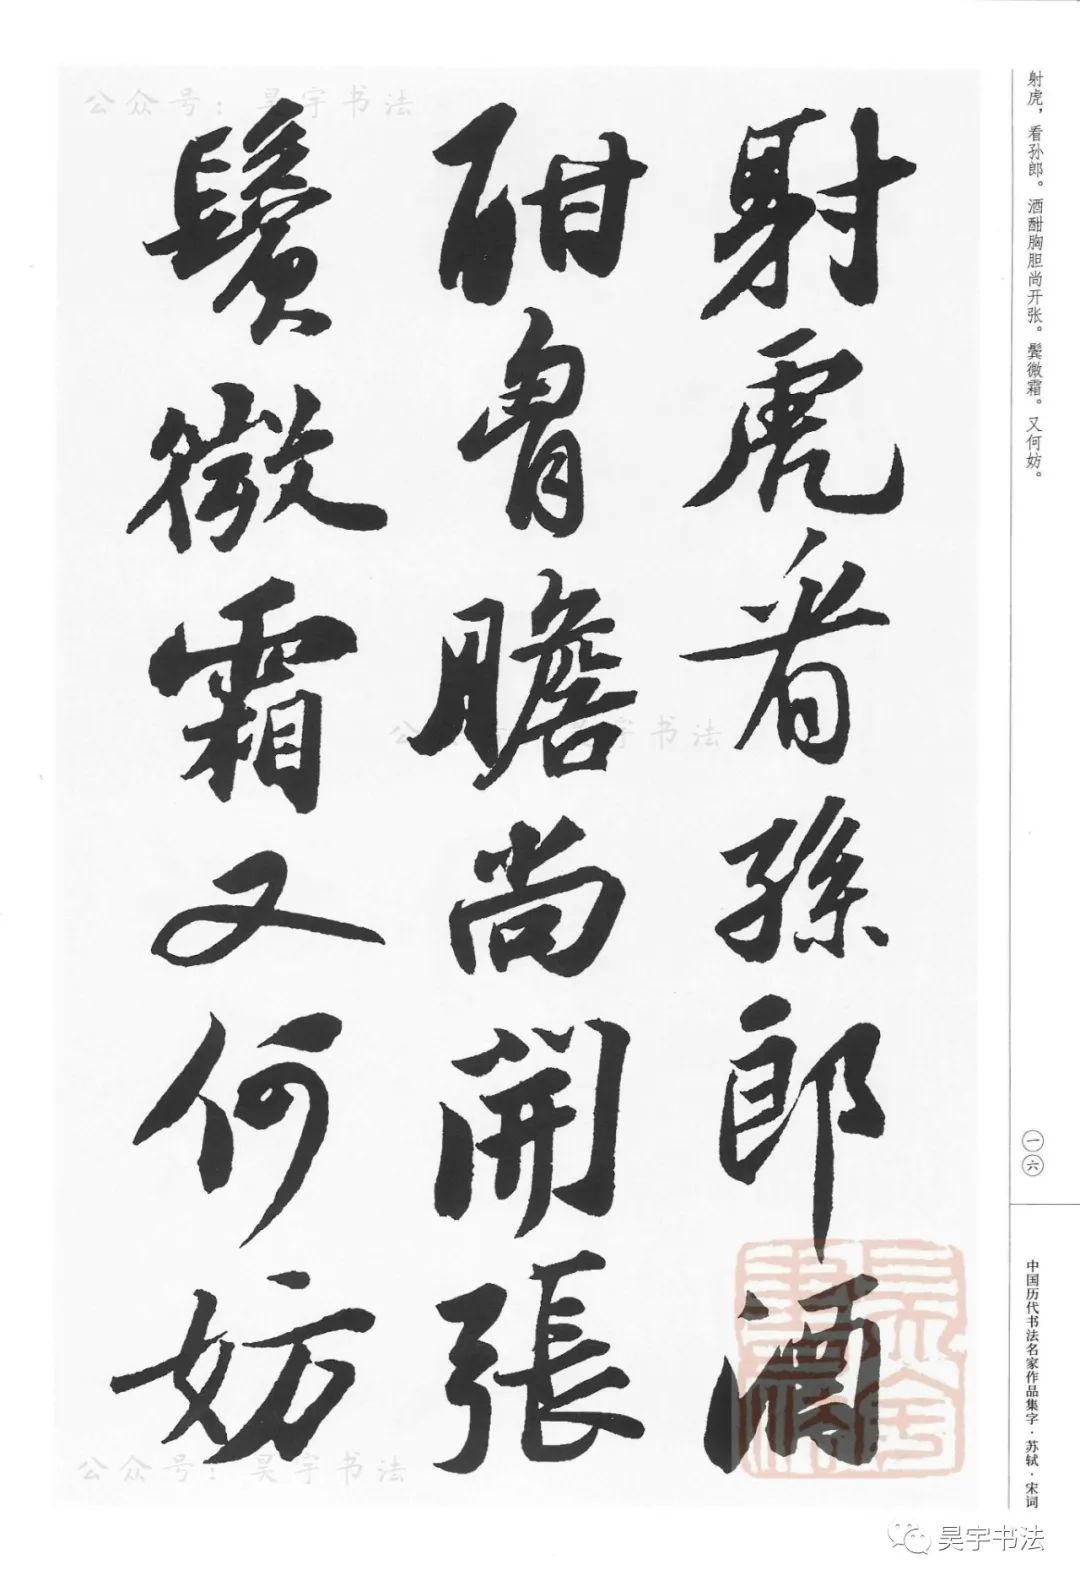 射虎，看孙郎。酒酣胸胆尚开张。鬓微霜。又何妨。
射虎看孫郎酒
酣胷膽尚開張
鬢微霜又何妨
公众号：昊宇书法
公众号：昊宇书法
公众号：昊宇书法
一六
中国历代书法名家作品集字·苏轼·宋词
昊宇书法